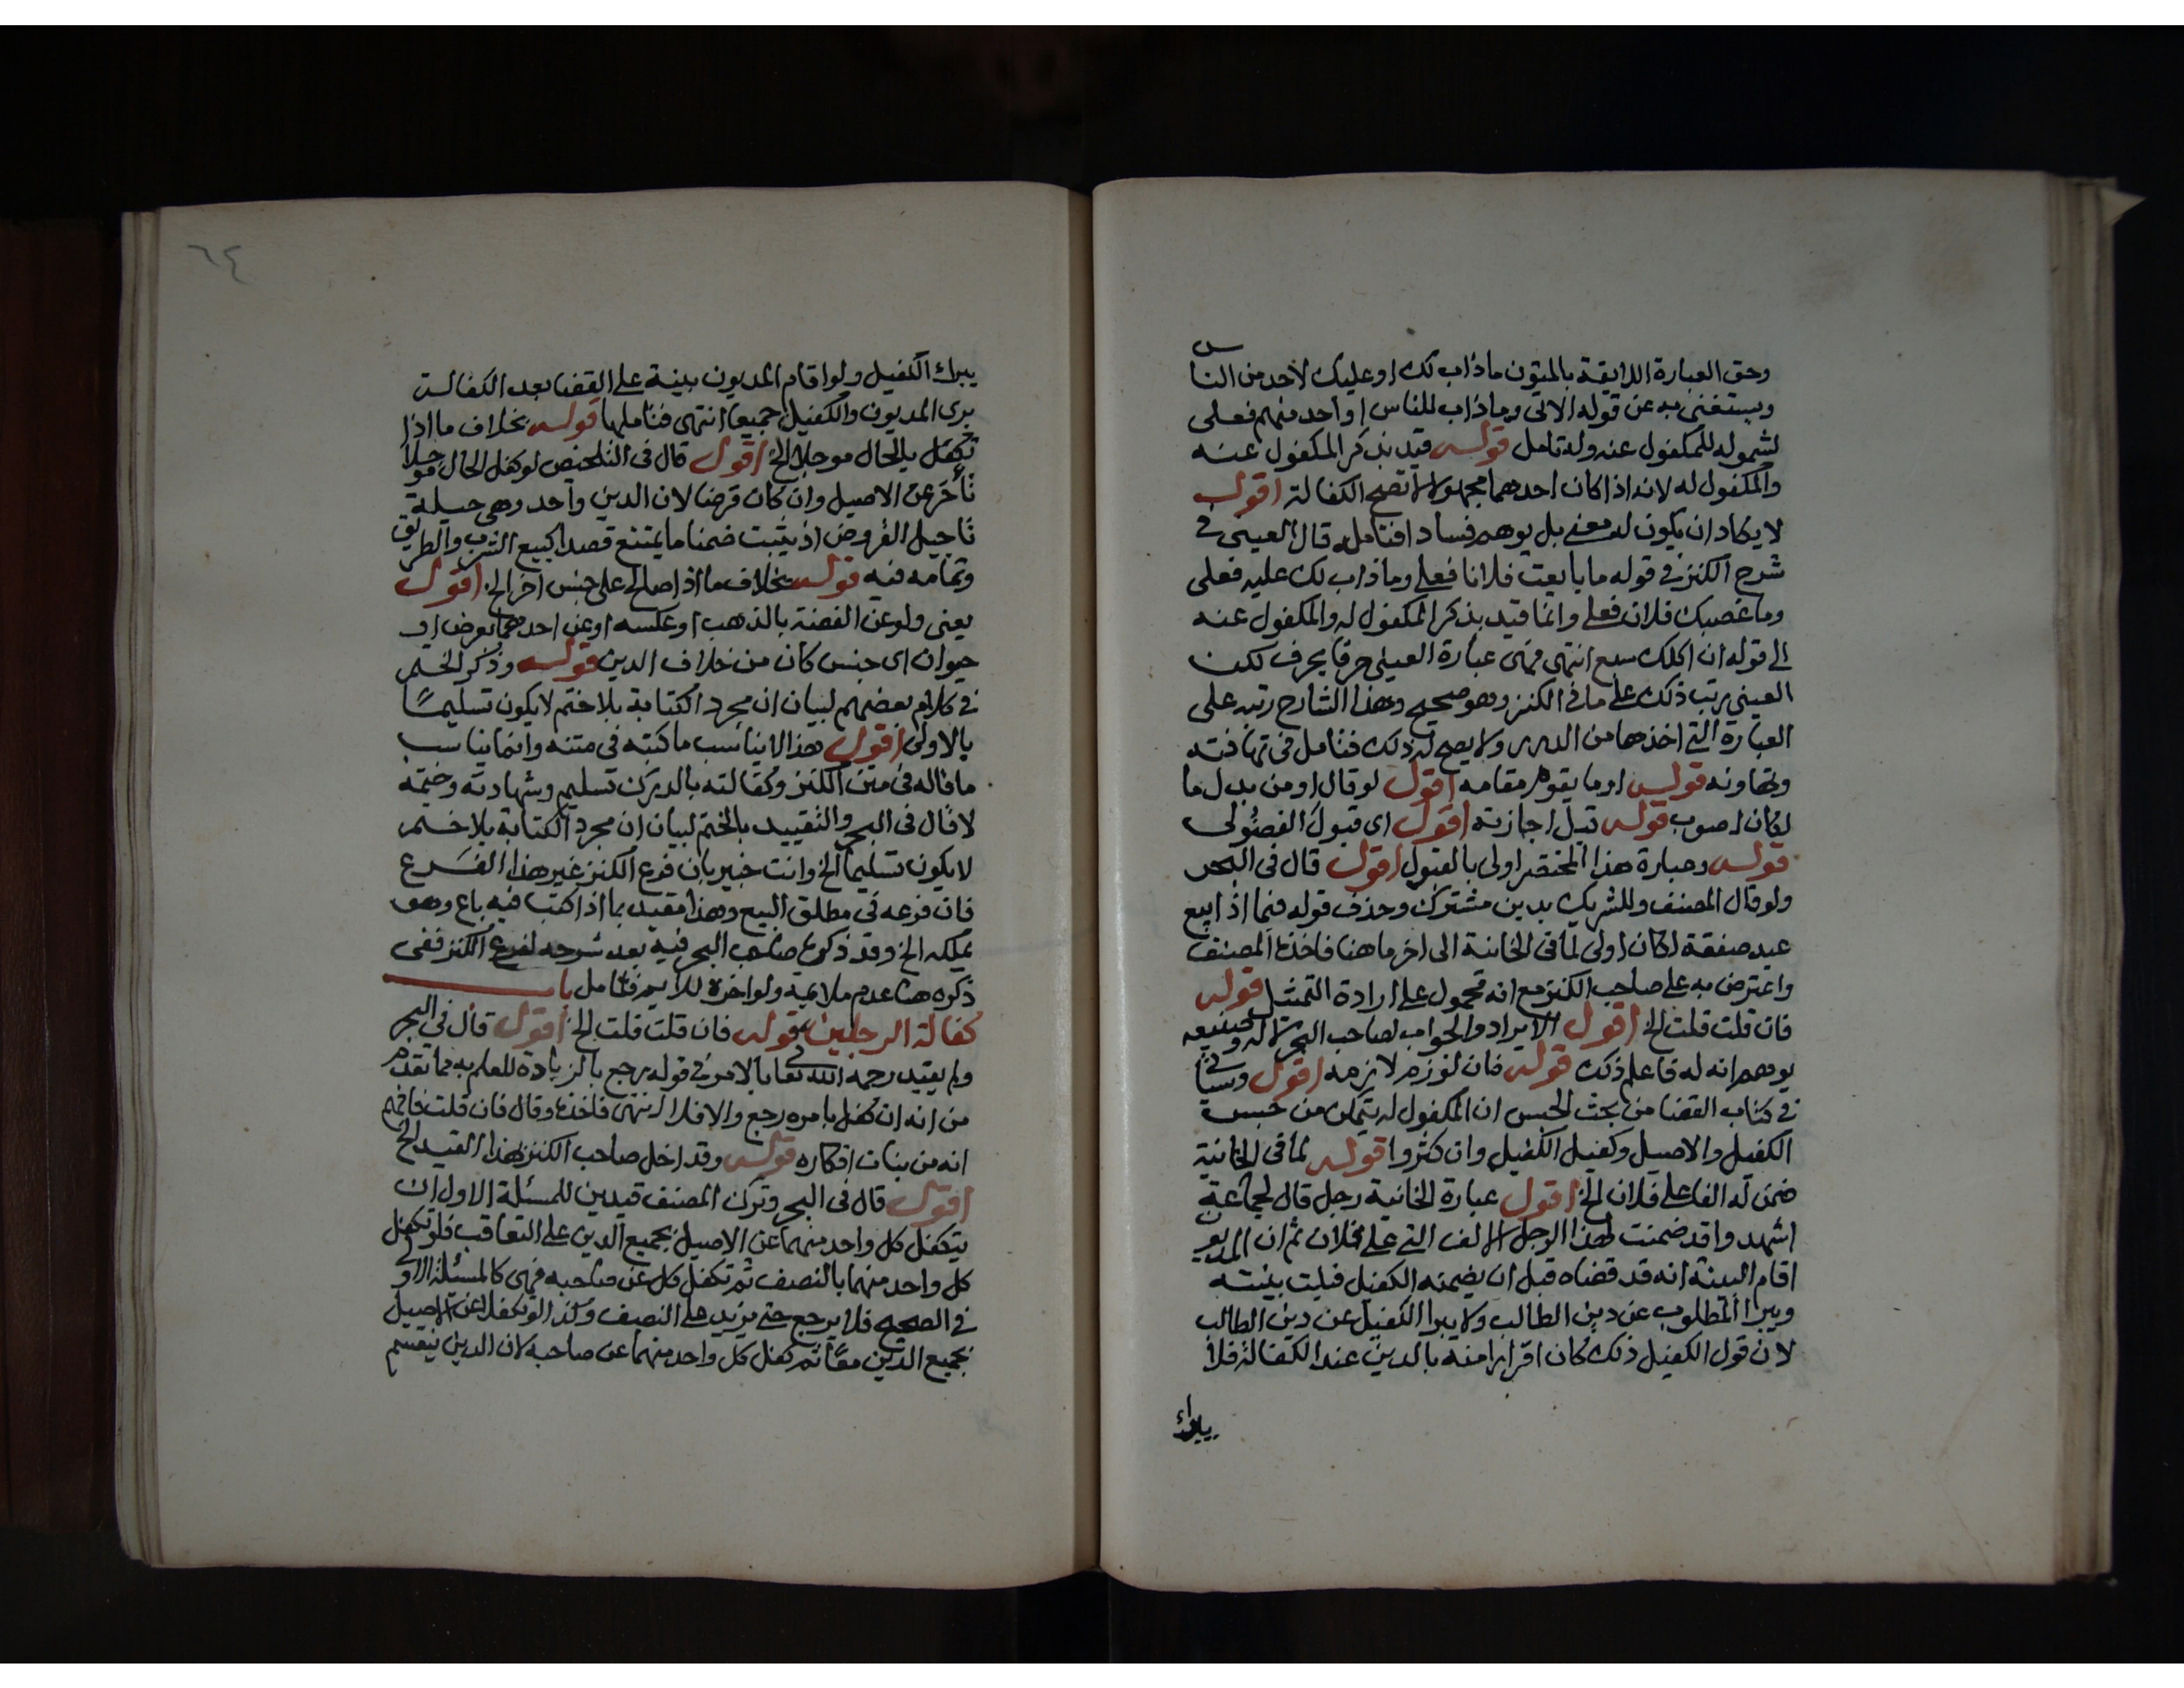 وحق العبارة اللايقة بالمتون ماذاب لك او عليك لاحد من الناس
ويستغنى به عن قوله الاتي وماذاب للناس او احد منهم فعلى
لشموله للمكفول عنه وله تامل قوله قيد بذكر المكفول عنه
والمكفول له لانه اذا كان احدهما مجهولا لا تصح الكفالة اقول
لا يكاد ان يكون له معنى بل يوهم فسادا فتامله قال العينى في
شرح الكنز في قوله ما بايعت فلانا فعلي وماذاب لك عليه فعلى
وما غصبك فلان فعلي وانما قيد بذكر المكفول له والمكفول عنه
الى قوله ان اكلك سبع انتهى فهى عبارة العينى حرفا بحرف لكن
العينى رتب ذلك على ما في الكنز وهو صحيح وهذا الشارح رتبه على
العبارة التي اخذها من الدرر ولا يصح له ذلك فتامل في تهافته
وتهاونه قوله او ما يقوم مقامه اقول لو قال او من بدل ما
لكان اصوب قوله قبل اجازته اقول اى قبول الفضولى
قوله وعبارة هذا المختصر اولى بالقبول اقول قال فى البحر
ولو قال المصنف وللشريك بدين مشترك وحذف قوله فيما اذا بيع
عبد صفقة لكان اولى لما في الخانية الى اخر ما هنا فاخذه المصنف
واعترض به على صاحب الكنز مع انه محمول على ارادة التمثيل قوله
فان قلت قلت الخ اقول الايراد والجواب لصاحب البحر لا له وصنيعه
يوهم انه له فاعلم ذلك قوله فان لوزم لازمه اقول وسياتي
في كتاب القضا من بحث الحبس ان المكفول له يتمكن من حبس
الكفيل والاصيل وكفيل الكفيل وان كثروا قوله لما فى الخانية
ضمن له الفا على فلان الخ اقول عبارة الخانية رجل قال لجماعة
اشهدوا قد ضمنت لهذا الرجل الالف التي على فلان ثم ان المديون
اقام البينة انه قد قضاه قبل ان يضمنه الكفيل قبلت بينته
ويبرا المطلوب عن دين الطالب ولا يبرا الكفيل عن دين الطالب
لان قول الكفيل ذلك كان اقرارا منه بالدين عند الكفالة فلا
يبراء
٦٤
يبراء الكفيل ولو اقام المديون بينة على القضا بعد الكفالة
برى المديون والكفيل جميعا انتهى فتاملها قوله بخلاف ما اذا
تكفل بالحال موجلا الخ اقول قال فى التلخيص لو كفل الحال موجلا
تأخر عن الاصيل وان كان قرضا لان الدين واحد وهى حيلة
تاجيل القروض اذ يثبت ضمنا ما يمتنع قصدا كبيع الشرب والطريق
وتمامه فيه قوله بخلاف ما اذا صالح على جنس اخر الخ اقول
يعنى ولو عن الفضة بالذهب او عكسه او عن احدهما بعرض او
حيوان اى جنس كان من خلاف الدين قوله وذكر الختم
في كلام بعضهم لبيان ان مجرد الكتابة بلا ختم لا يكون تسليما
بالاولى اقول هذا لا يناسب ما كتبه فى متنه وانما يناسب
ما قاله فى متن الكنز وكفالته بالدرك تسليم وشهادته وختمه
لا قال فى البحر والتقييد بالختم لبيان ان مجرد الكتابة بلا ختم
لا يكون تسليما الخ وانت خبير بان فرع الكنز غير هذا الفرع
فان فرعه في مطلق البيع وهذا مقيد بما اذا كتب فيه باع وهو
يملكه الخ وقد ذكره صاحب البحر فيه بعد شرحه لفرع الكنز ففى
ذكره هنا عدم ملايمة ولو اخره للايم فتامل باب
كفالة الرجلين قوله فان قلت قلت الخ اقول قال في البحر
ولم يقيد رحمه الله تعالى بالامر في قوله رجع بالزيادة للعلم به مما تقدم
من انه ان كفل بامره رجع والا فلا انتهى فاخذه وقال فان قلت فافهم
انه من بنات افكاره قوله وقد اخل صاحب الكنز بهذا القيد الخ
اقول قال فى البحر وترك المصنف قيدين للمسئلة الاول ان
يتكفل كل واحد منهما عن الاصيل بجميع الدين على التعاقب فلو تكفل
كل واحد منهما بالنصف ثم تكفل كل عن صاحبه فهى كالمسئلة الاولى
في الصحيح فلا يرجع حتى يزيد على النصف وكذا لو تكفلا عن الاصيل
بجميع الدين معا ثم تكفل كل واحد منهما عن صاحبه لان الدين ينقسم